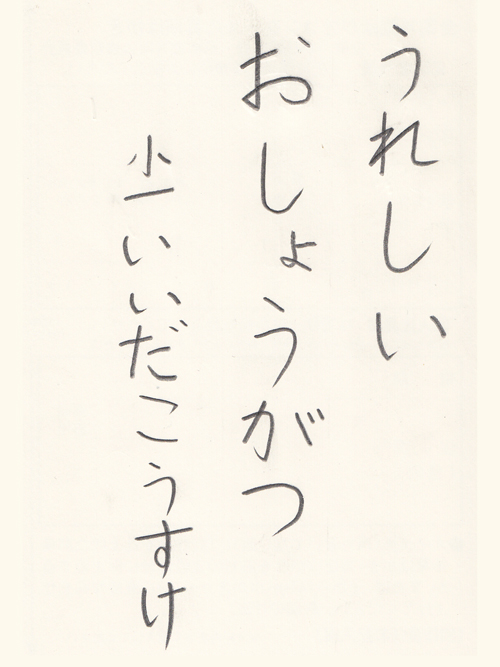 うれしい
おしょうがつ
小一いいだこうすけ